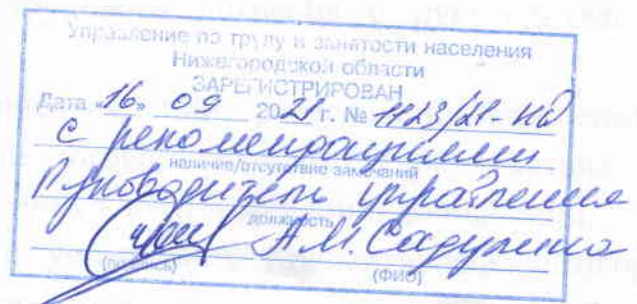 Управление по труду и занятости населения
Нижегородской области
ЗАРЕГИСТРИРОВАН
Дата «16» 09 2021 г. № 1123/21-КД
с рекомендациями
наличие/отсутствие замечаний
Руководитель управления
должность
А.М. Садулина
(подпись) (ФИО)